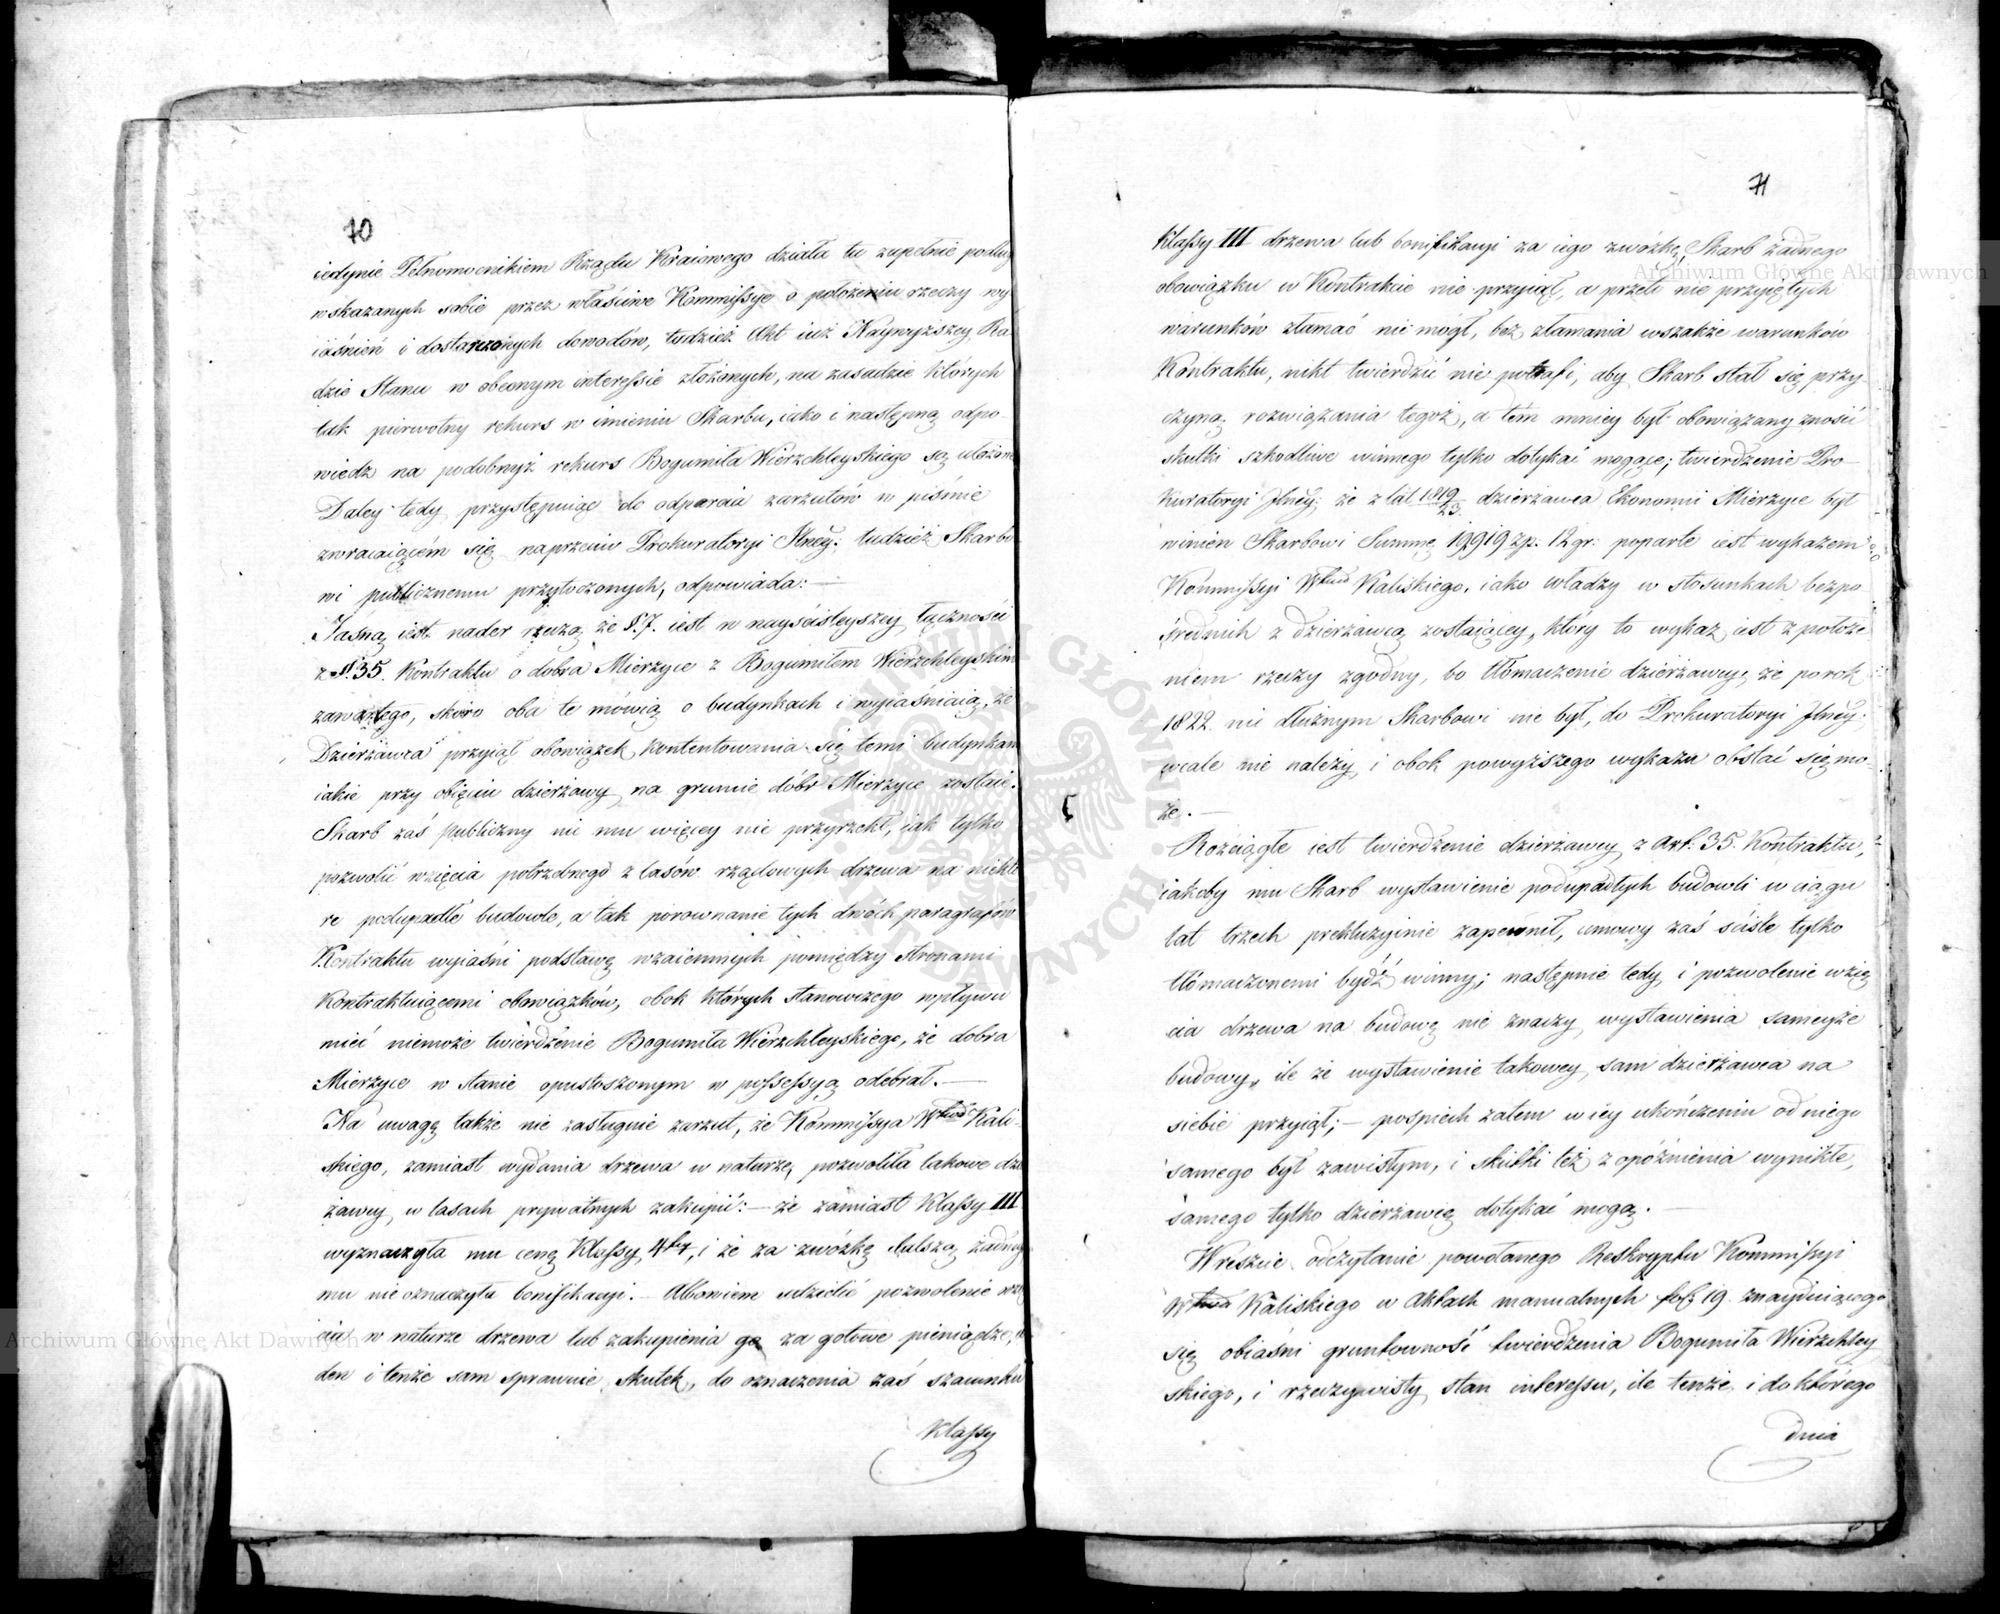 70
iedynie Pełnomocnikiem Rządu Kraiowego działa tu zupełnie podług
wskazanych sobie przez właściwe Kommissye o położeniu rzeczy wy
iaśnień i dostarczonych dowodów, tudzież Akt iuż Naywyższey Ra
dzie Stanu w obecnym interessie złożonych, na zasadzie których
tak pierwotny rekurs w imieniu Skarbu, iako i następną odpo
wiedz na podobnyż rekurs Bogumiła Wierzchleyskiego są ułożone
Daley tedy przystępuiąc do odparcia zarzutów w piśmie
zwracaiącém się naprzeciw Prokuratoryi Jlney: tudzież Skarbo
wi publicznemu przytoczonych, odpowiada: —
Jasną iest nader rzeczą że §. 7. iest w nayściśleyszey łączności
z §. 35. Kontraktu o dobra Mierzyce z Bogumiłem Wierzchleyskim
zawartego, skoro oba te mówią o budynkach i wyiaśniaią, że
Dzierżawca przyiął obowiązek kontentowania się temi budynkam
iakie przy obięciu dzierżawy na gruncie dóbr Mierzyce zostaie.
Skarb zaś Publiczny nic mu więcey nie przyrzekł, iak tylko
pozwolić wzięcia potrzebnego z lasów rządowych drzewa na niektó
re podupadłe budowle, a tak porownanie tych dwóch paragrafów
Kontraktu wyiaśni podstawę wzaiemnych pomiędzy stronami
Kontraktuiącemi obowiązków, obok których stanowczego wpływu
mieć niemoże twierdzenie Bogumiła Wierzchleyskiego, że dobra
Mierzyce w stanie opustoszonym w possessyą odebrał. —
Na uwagę także nie zasługuie zarzut, że Kommissya Wtwa Kali-
skiego, zamiast wydania drzewa w naturze, pozwoliła takowe dzie
żawcy w lasach prywatnych zakupić: — że zamiast Klassy III
wyznaczyła mu cenę Klassy 4tey, i że za zwózkę dalszą żadney
mu nie oznaczyła bonifikacyi. — Albowiem udzielić pozwolenie wzię
cia w naturze drzewa lub zakupienia go za gotowe pieniądze, ie
den i tenże sam sprawuie skutek, do oznaczenia zaś szacunku
Klassy
71
Klassy III drzewa lub bonifikacyi za iego zwózkę, Skarb żadnego
obowiązku w Kontrakcie nie przyiął, a przeto nie przyiętych
warunków złamać nie mógł, bez złamania wszakże warunków
Kontraktu, nikt twierdzić nie potrafi, aby Skarb stał się przy-
czyną rozwiązania tegoż, a tém mniey był obowiązany znosić
skutki szkodliwe winnego tylko dotykać mogące; twierdzenie Pro-
kuratoryi Jlney: że z lat 1819/23. dzierżawca Ekonomii Mierzyce był
winien Skarbowi Summę 19919 zp. 12 gr: poparte iest wykazem
Kommissyi Wtwa Kaliskiego, iako władzy w stosunkach bezpo
średnih z dzierżawcą zostaiącey, który to wykaz iest z położe
niem rzeczy zgodny, bo tłómaczenie dzierżawcy, że po rok
1822 nic dłużnym Skarbowi nie był, do Prokuratoryi Jlney:
wcale nie należy i obok powyższego wykazu obstać się mo-
że. —
Rozciągłe iest twierdzenie dzierżawcy z Art. 35. Kontraktu,
iakoby mu Skarb wystawienie podupadłych budowli w ciągu
lat trzech prekluzyinie zapewnił, umowy zaś ściśle tylko
tłómaczonemi bydź winny; następnie tedy i pozwolenie wzię
cia drzewa na budowę nie znaczy wystawienia sameyże
budowy, ile że wystawienie takowey sam dzierżawca na
siebie przyiął; — pospiech zatem w iey ukończeniu od niego
samego był zawisłym, i skutki też z opóźnienia wynikłe,
samego tylko dzierżawcę dotykać mogą. —
Wreszcie odczytanie powołanego Reskryptu Kommissyi
Wtwa Kaliskiego w Aktach manualnych fol: 19. znayduiącego
się obiaśni gruntowność twierdzenia Bogumiła Wierzchley
skiego, i rzeczywisty stan interessu, ile tenże i do którego
dnia
Archiwum Główne Akt Dawnych
Archiwum Główne Akt Dawnych
ARCHIWUM GŁÓWNE AKT DAWNYCH